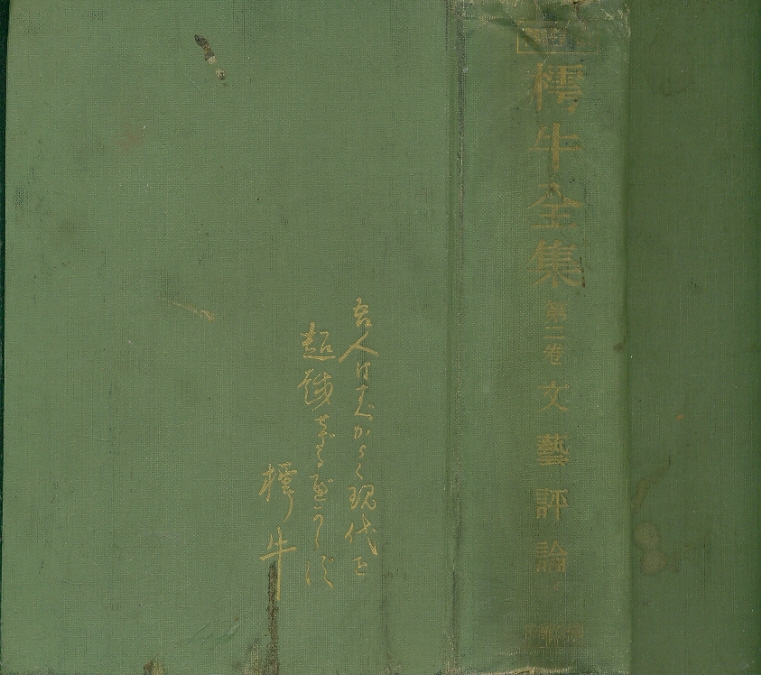 樗牛全集
第二卷
文藝評論
吾人はすべからく現代を
超越せざるべからず
樗牛